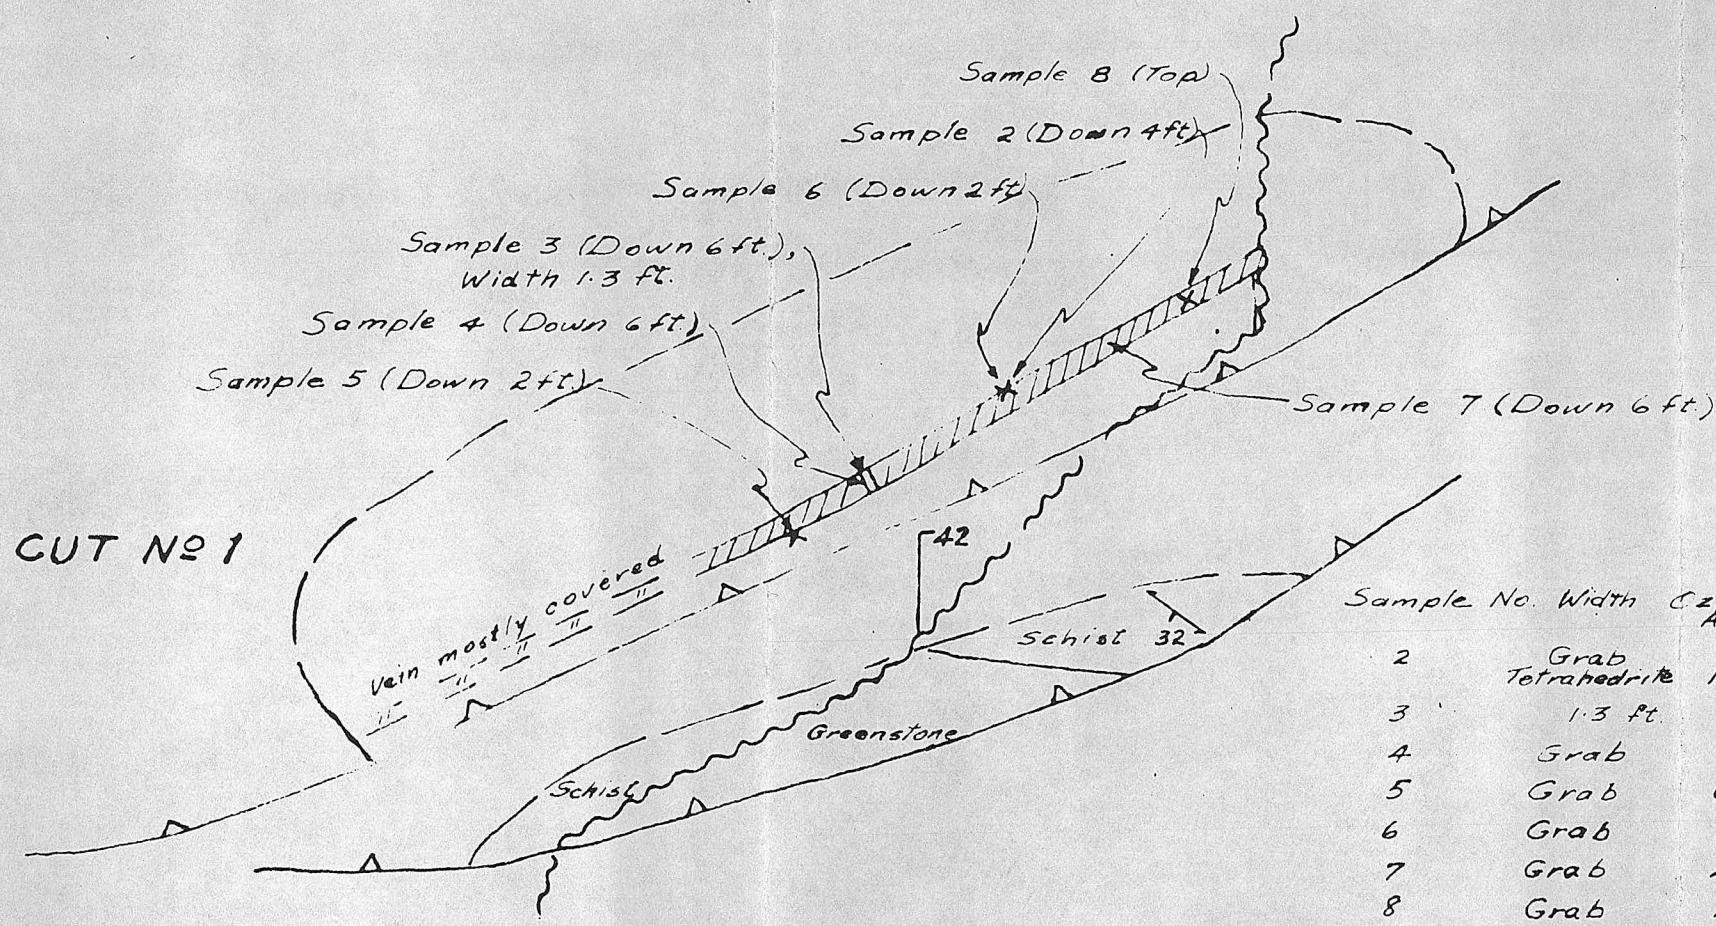 Sample 8 (Top)
Sample 2 (Down 4ft)
Sample 6 (Down 2ft)
Sample 3 (Down 6ft.),
Width 1.3 ft.
Sample 4 (Down 6ft)
Sample 5 (Down 2ft)
Sample 7 (Down 6ft.)
CUT Nº 1
42
Vein mostly covered
Schist 32
Greenstone
Schist
Sample No. Width
2 Grab
Tetrahedrite
3 1.3 ft.
4 Grab
5 Grab
6 Grab
7 Grab
8 Grab